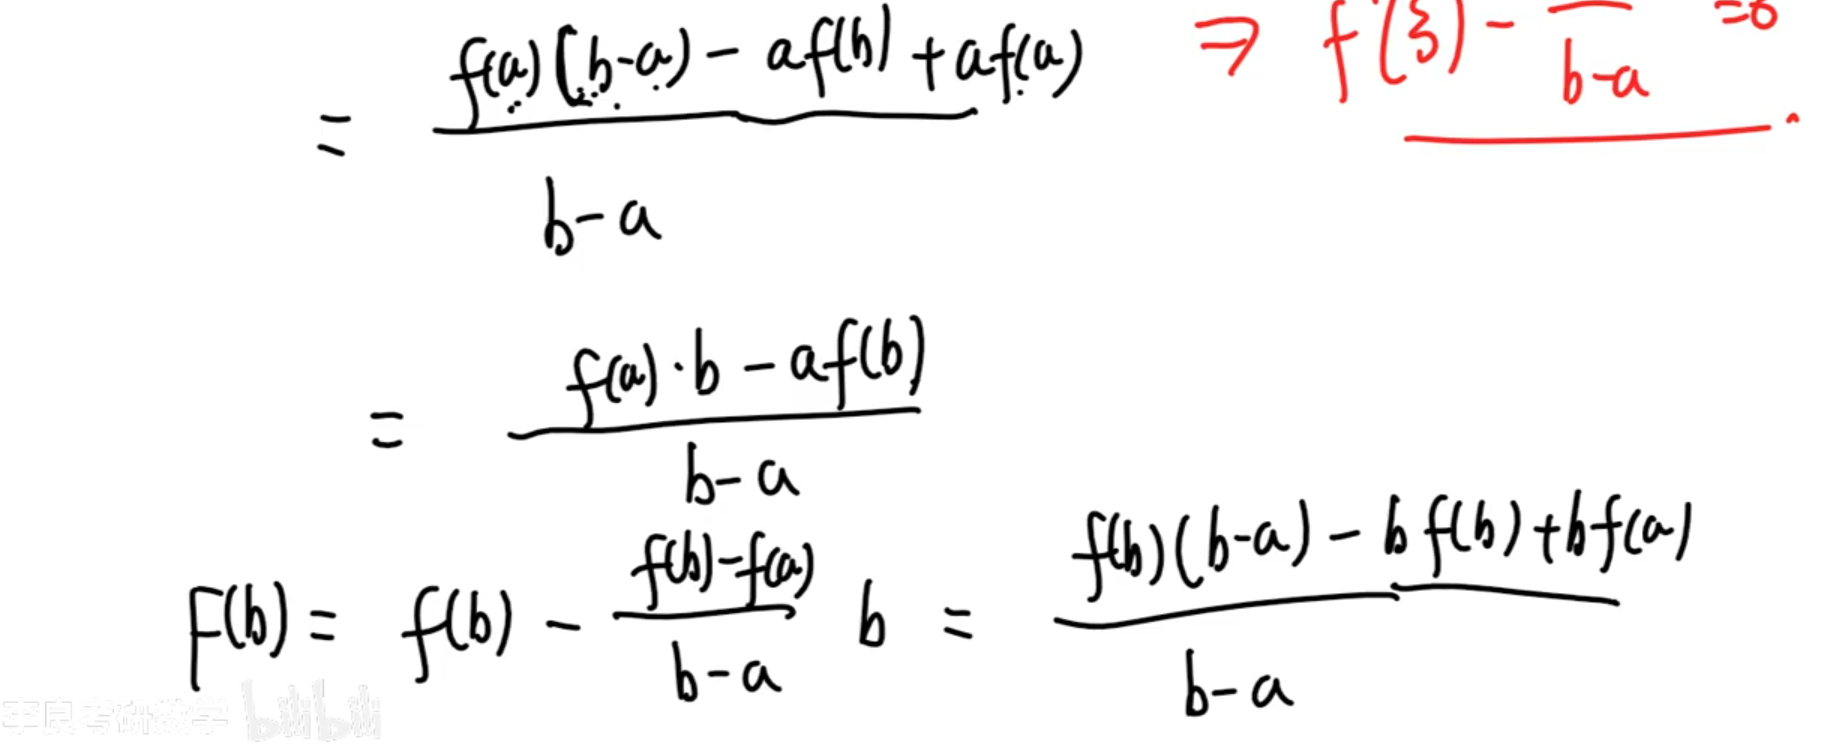 = \frac{f(a)(b-a) - af(b) + af(a)}{b-a}
⇒ f'(ξ) - \frac{}{b-a} =0
= \frac{f(a)·b - af(b)}{b-a}
F(b) = f(b) - \frac{f(b)-f(a)}{b-a} b = \frac{f(b)(b-a) - bf(b) + bf(a)}{b-a}
李良考研数学 bilibili